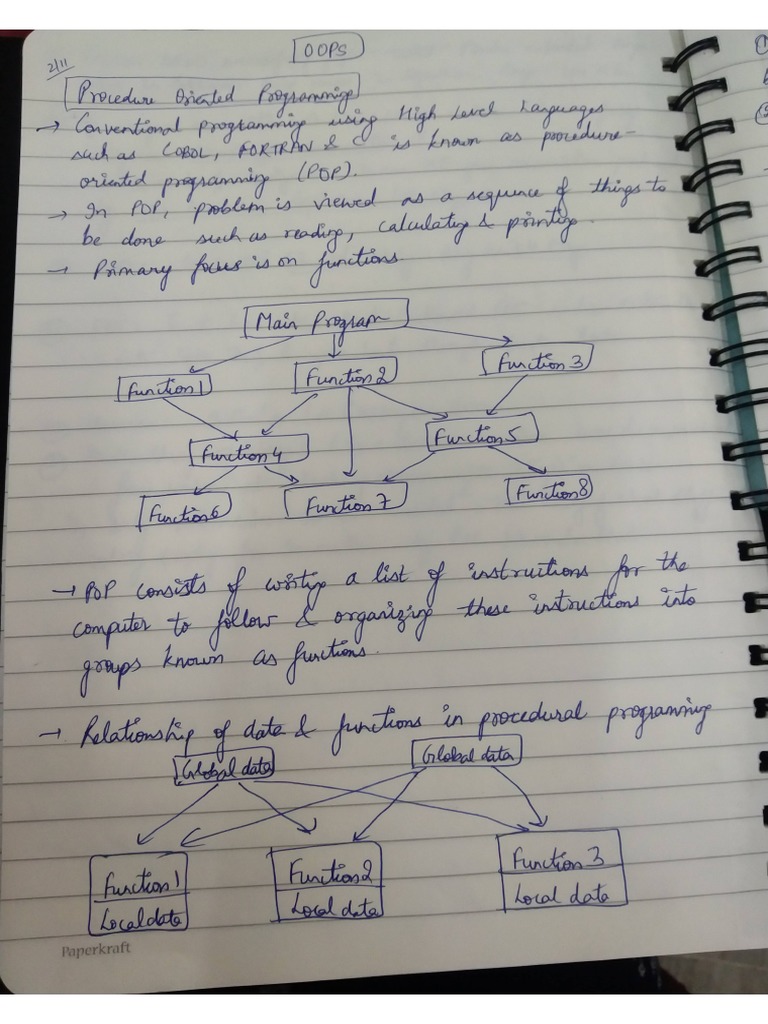 OOPS
2/11
Procedure Oriented Programming
→ Conventional programming using High Level Languages
such as COBOL, FORTRAN & C is known as procedure-
oriented programming (POP).
→ In POP, problem is viewed as a sequence of things to
be done such as reading, calculating & printing.
→ Primary focus is on functions.
Main Program
Function 1 Function 2 Function 3
Function 4 Function 5
Function 6 Function 7 Function 8
→ POP consists of writing a list of instructions for the
computer to follow & organizing these instructions into
groups known as functions.
→ Relationship of data & functions in procedural programming
Global data Global data
Function 1 Function 2 Function 3
Local data Local data Local data
Paperkraft